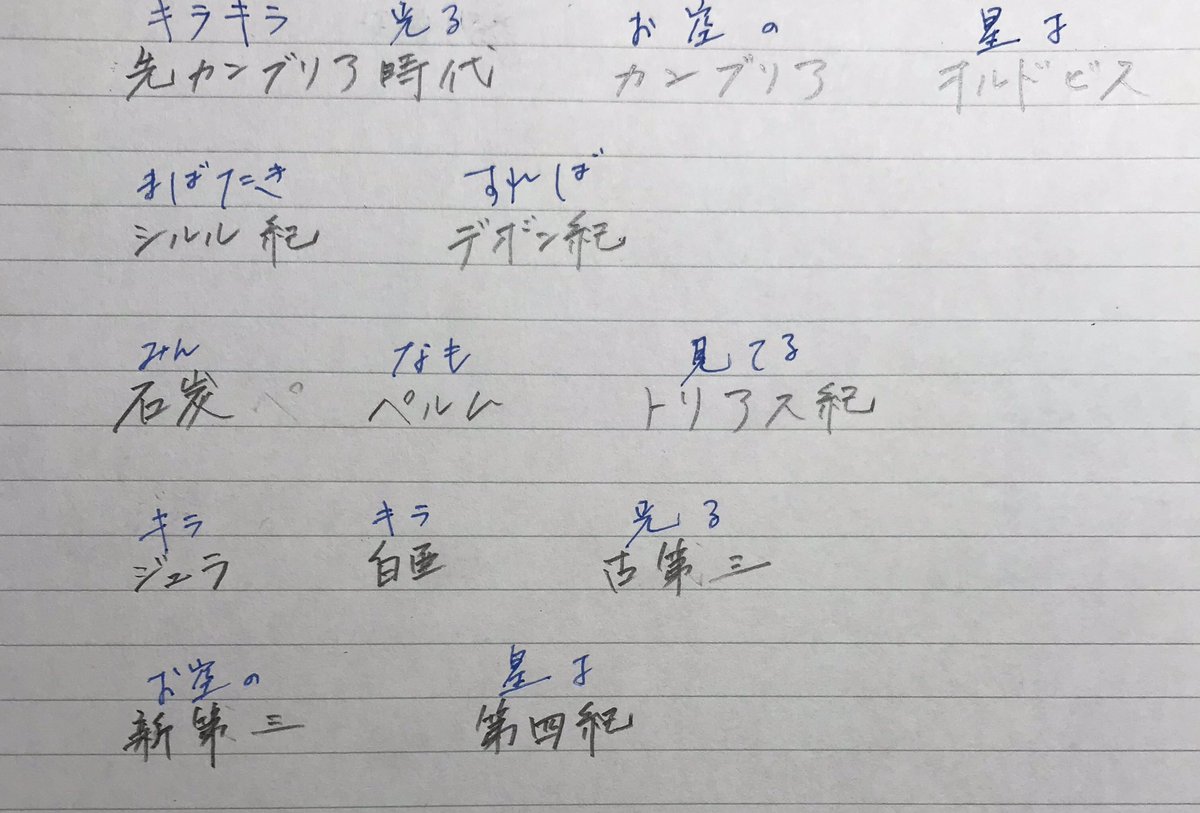 キラキラ 光る お空の 星よ
先カンブリア時代 カンブリア オルドビス
まばたき すれば
シルル紀 デボン紀
みん なも 見てる
石炭 ペルム トリアス紀
キラ キラ 光る
ジュラ 白亜 古第三
お空の 星よ
新第三 第四紀